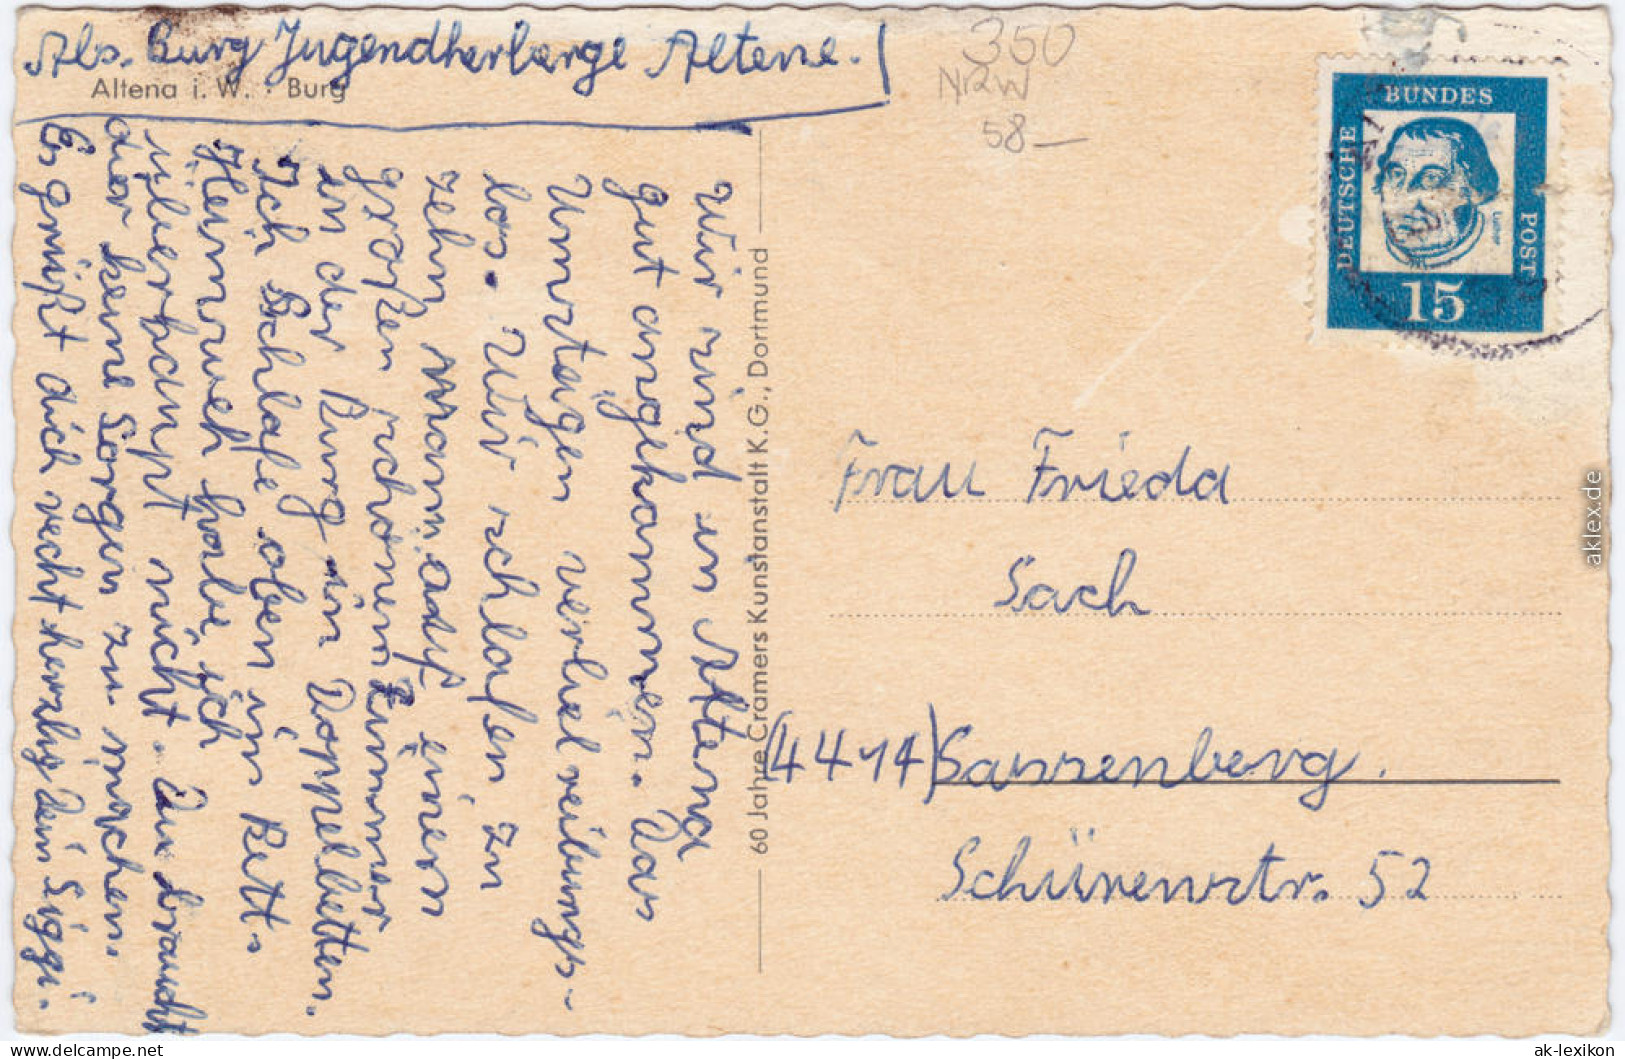 Abs. Burg Jugendherberge Altena.
Altena i. W. · Burg
350
NRW
58.—
DEUTSCHE
BUNDES
POST
Luther
15
Wir sind in Altena
gut angekommen. Das
Umsteigen verlief reibungs-
los. Wir schlafen zu
zehn mann auf einem
großen schönem Zimmer
in der Burg in Doppelbetten.
Ich schlafe oben im Bett.
Heimweh habe ich
überhaupt nicht. Du brauchst
dir keine Sorgen zu machen.
Es grüßt dich recht herzlig Dein Siggi.
60 Jahre Cramers Kunstanstalt K.G., Dortmund
Frau Frieda
Sach
(4414) Sassenberg.
Schürenstr. 52
aklex.de
www.delcampe.net
ak-lexikon